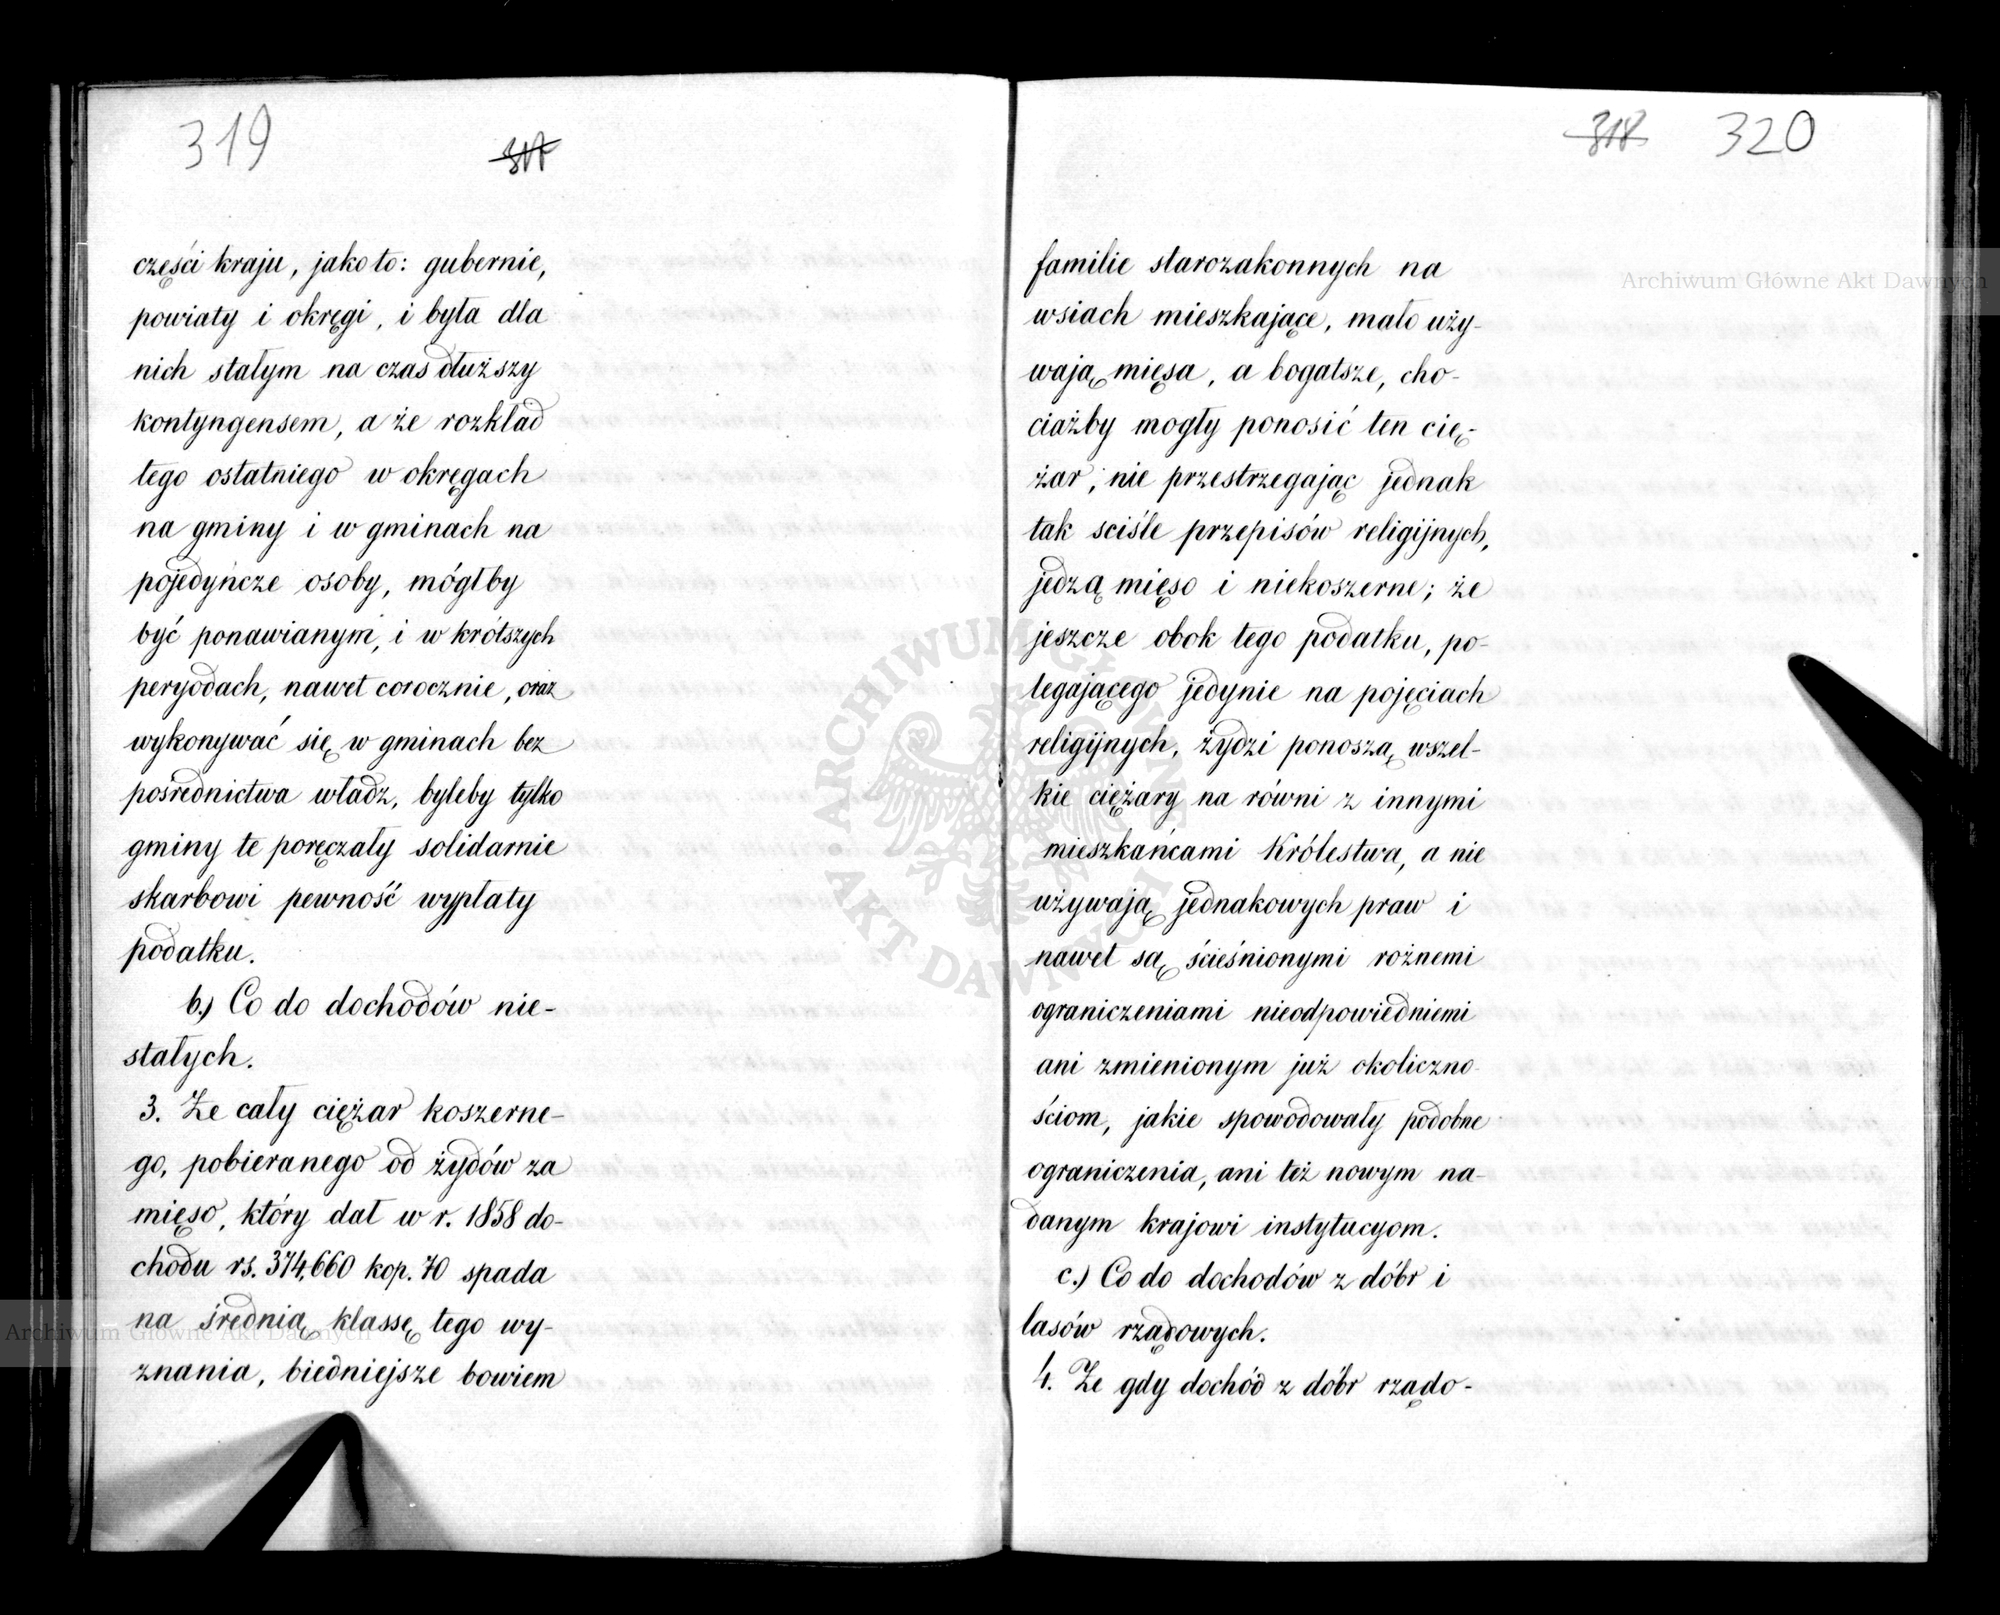 319
317
części kraju, jako to: gubernie,
powiaty i okręgi, i była dla
nich stałym na czas dłuższy
kontyngensem, a że rozkład
tego ostatniego w okręgach
na gminy i w gminach na
pojedyńcze osoby, mógłby
być ponawianym, i w krótszych
peryodach, nawet corocznie, oraz
wykonywać się w gminach bez
pośrednictwa władz, byleby tylko
gminy te poręczały solidarnie
skarbowi pewność wypłaty
podatku.
b.) Co do dochodów nie-
stałych.
3. Że cały ciężar koszerne-
go, pobieranego od żydów za
mięso, który dał w r. 1858 do-
chodu rs. 374,660 kop. 70 spada
na średnią klassę tego wy-
znania, biedniejsze bowiem
318 320
familie starozakonnych na
wsiach mieszkające, mało uży-
wają mięsa, a bogatsze, cho-
ciażby mogły ponosić ten cię-
żar, nie przestrzegając jednak
tak sciśle przepisów religijnych,
jedzą mięso i niekoszerne; że
jeszcze obok tego podatku, po-
legającego jedynie na pojęciach
religijnych, żydzi ponoszą wszel-
kie ciężary na równi z innymi
mieszkańcami Królestwa, a nie
używają jednakowych praw i
nawet są ścieśnionymi rożnemi
ograniczeniami nieodpowiedniemi
ani zmienionym już okoliczno-
ściom, jakie spowodowały podobne
ograniczenia, ani też nowym na-
danym krajowi instytucyom.
c.) Co do dochodów z dóbr i
lasów rządowych.
4. Że gdy dochód z dóbr rządo-
Archiwum Główne Akt Dawnych
ARCHIWUM GŁÓWNE
AKT DAWNYCH
Archiwum Główne Akt Dawnych